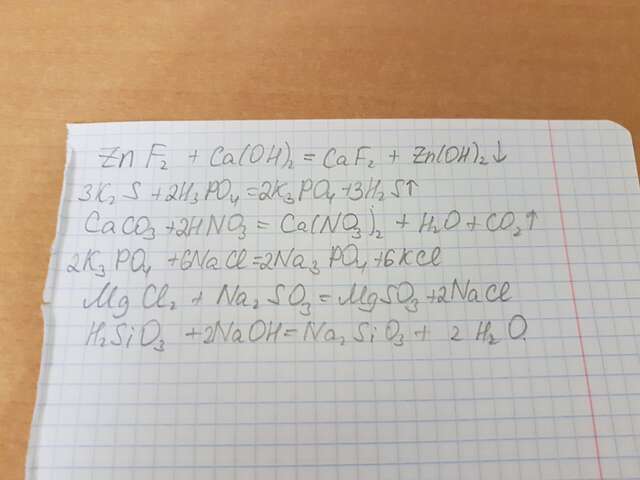 ZnF₂ + Ca(OH)₂ = CaF₂ + Zn(OH)₂↓
3K₂S + 2H₃PO₄ = 2K₃PO₄ + 3H₂S↑
CaCO₃ + 2HNO₃ = Ca(NO₃)₂ + H₂O + CO₂↑
2K₃PO₄ + 6NaCl = 2Na₃PO₄ + 6KCl
MgCl₂ + Na₂SO₃ = MgSO₃ + 2NaCl
H₂SiO₃ + 2NaOH = Na₂SiO₃ + 2H₂O